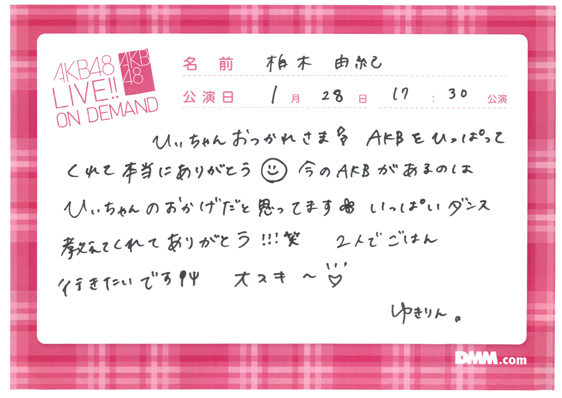 AKB48
LIVE!!
ON DEMAND
AKB
48
名前 柏木 由紀
公演日 1月 28日 17:30 公演
ひぃちゃんおつかれさま AKBをひっぱって
くれて本当にありがとう 今のAKBがあるのは
ひぃちゃんのおかげだと思ってます いっぱいダンス
教えてくれてありがとう!!!笑 2人でごはん
行きたいです 大スキ〜♡
ゆきりん。
DMM.com